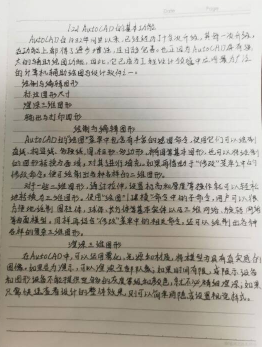 1.2.1 AutoCAD的基本功能
AutoCAD自1982年问世以来,已经经历了十余次升级,其每一次升级,
在功能上都得到了逐步增强,且日趋完善。也正因为AutoCAD具有强
大的辅助绘图功能,因此,它已成为工程设计领域中应用最为广泛
的计算机辅助绘图与设计软件之一。
绘制与编辑图形
标注图形尺寸
渲染三维图形
输出与打印图形
绘制与编辑图形
AutoCAD的"绘图"菜单中包含有丰富的绘图命令,使用它们可以绘制
直线、构造线、多段线、圆、矩形、多边形、椭圆等基本图形,也可以将绘制
的图形转换为面域,对其进行填充。如果再借助于"修改"菜单中的
修改命令,便可绘制出各种各样的二维图形。
对于一些二维图形,通过拉伸、设置标高和厚度等操作就可以轻松
地转换为三维图形。使用"绘图"|"建模"命令中的子命令,用户可以很
方便地绘制圆柱体、球体、长方体等基本实体以及三维网格、旋转网格
等曲面模型。同样再结合"修改"菜单中的相关命令,还可以绘制出各种
各样的复杂三维图形。
渲染三维图形
在AutoCAD中,可以运用雾化、光源和材质,将模型渲染为具有真实感的
图像。如果是为了演示,可以渲染全部对象;如果时间有限,或显示设备
和图形设备不能提供足够的灰度等级和颜色,就不必精细渲染;如果
只需快速查看设计的整体效果,则可以简单消隐或设置视觉样式。